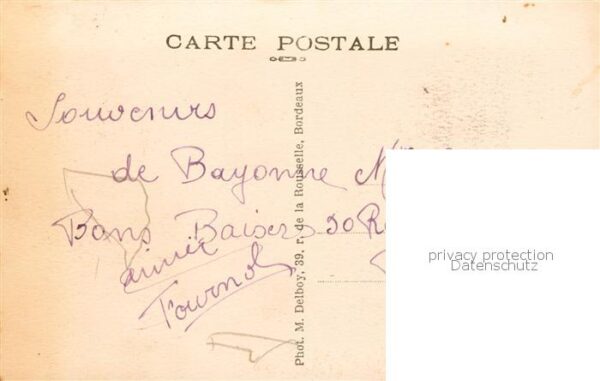 CARTE POSTALE
Souvenirs
de Bayonne
Bons Baisers
Phot. M. Delboy, 39, r. de la Rousselle, Bordeaux
30
privacy protection
Datenschutz